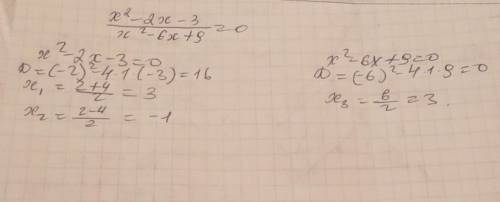 x²-2x-3 / x²-6x+9 = 0
x²-2x-3=0
D=(-2)²-4·1·(-3)=16
x₁ = 2+4/2 = 3
x₂ = 2-4/2 = -1
x²-6x+9=0
D=(-6)²-4·1·9=0
x₃ = 6/2 = 3.